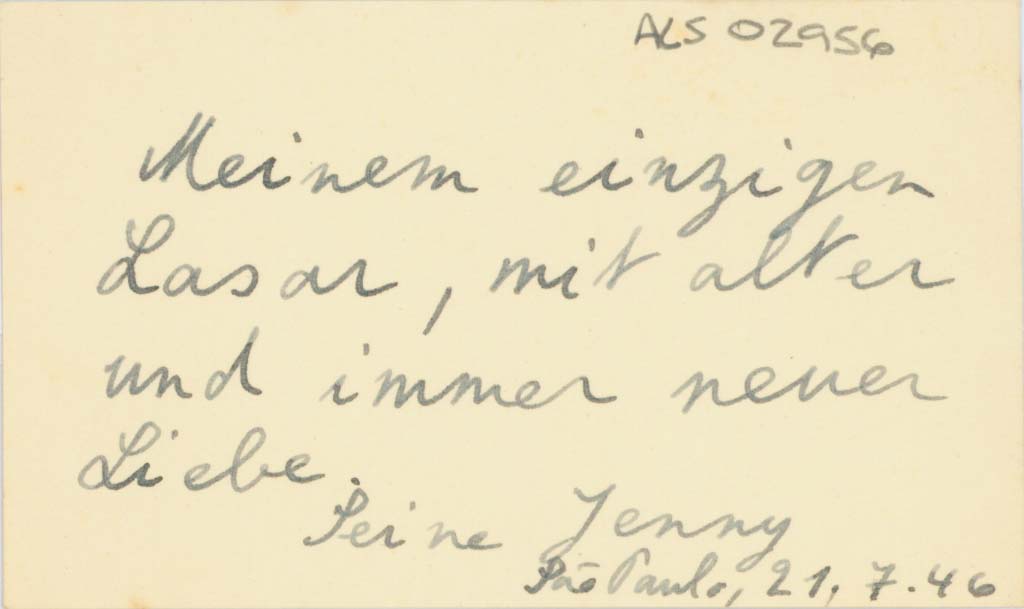 ALS 02956
Meinem einzigen
Lasar, mit alter
und immer neuer
Liebe.
Seine Jenny
São Paulo, 21. 7. 46